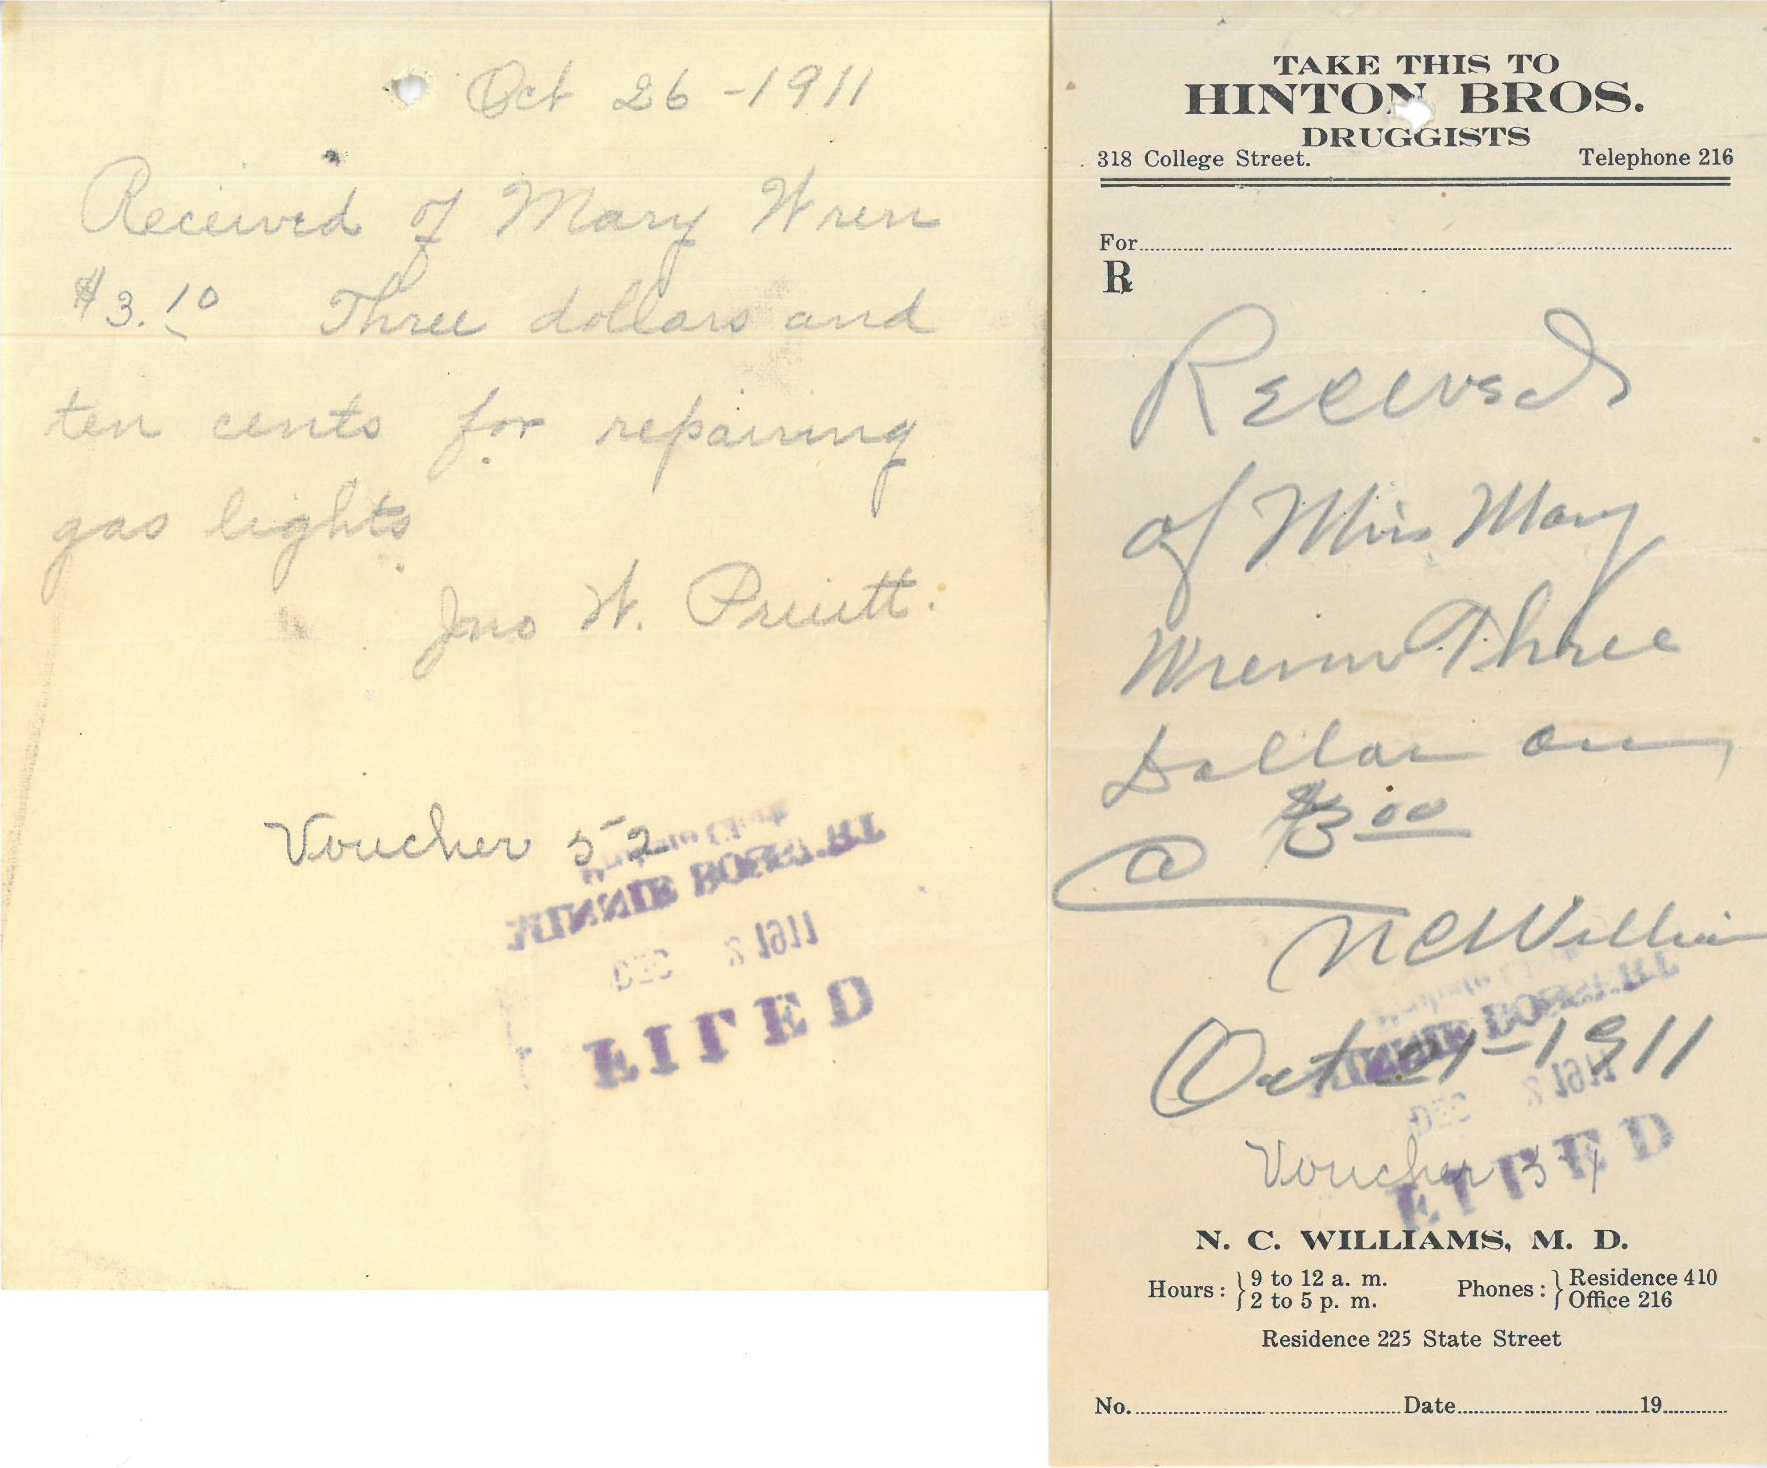 Oct 26 - 1911
Received of Mary Wren
$3.10 Three dollars and
ten cents for repairing
gas lights
Jno W. Pruitt.
Voucher 52
MINNIE BOSSERT
DEC 2 1911
FILED
TAKE THIS TO
HINTON BROS.
DRUGGISTS
318 College Street. Telephone 216
For
℞
Received
of Miss Mary
Three
Dollars
$3.00
N C William
Oct 1911
Voucher 51
DEC 2 1911
FILED
N. C. WILLIAMS, M. D.
Hours: 9 to 12 a. m. Phones: Residence 410
2 to 5 p. m. Office 216
Residence 225 State Street
No. Date 19